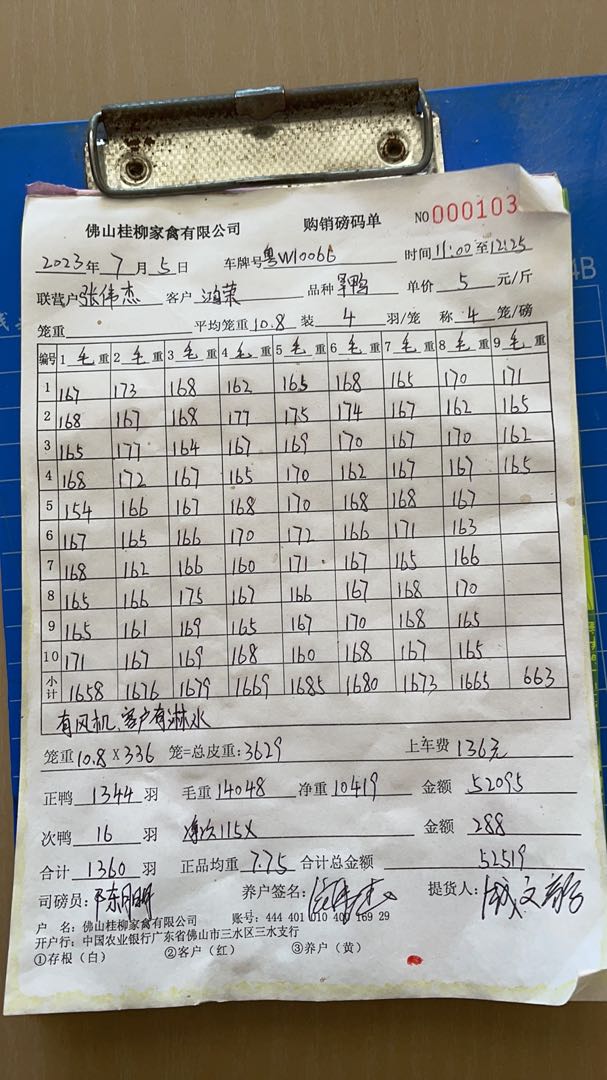 佛山桂柳家禽有限公司 购销磅码单 NO 000103
2023年 7月 5日 车牌号 粤W10066 时间 11:00至12:25
联营户 张伟杰 客户 鸿荣 品种 单价 5 元/斤
笼重 平均笼重 10.8 装 4 羽/笼 称 4 笼/磅
编号 1 毛重 2 毛重 3 毛重 4 毛重 5 毛重 6 毛重 7 毛重 8 毛重 9 毛重
1 167 173 168 162 165 168 165 170 171
2 168 167 168 177 175 174 167 162 165
3 165 177 164 167 169 170 167 170 162
4 168 172 167 165 170 162 167 167 165
5 154 166 167 168 170 168 168 167
6 167 165 166 170 172 166 171 163
7 168 162 166 160 171 167 165 166
8 165 166 175 167 166 167 168 170
9 165 161 169 165 167 170 168 165
10 171 167 169 168 160 168 167 165
小计 1658 1676 1679 1669 1685 1680 1673 1665 663
有风机、客户有淋水
笼重 10.8 X 336 笼=总皮重: 3629 上车费 136元
正鸭 1344 羽 毛重 14048 净重 10419 金额 52095
次鸭 16 羽 金额 288
合计 1360 羽 正品均重 7.75 合计总金额 52519
司磅员: 养户签名: 提货人:
户 名: 佛山桂柳家禽有限公司 账号: 444 401 010 400 169 29
开户行: 中国农业银行广东省佛山市三水区三水支行
①存根（白） ②客户（红） ③养户（黄）
4B